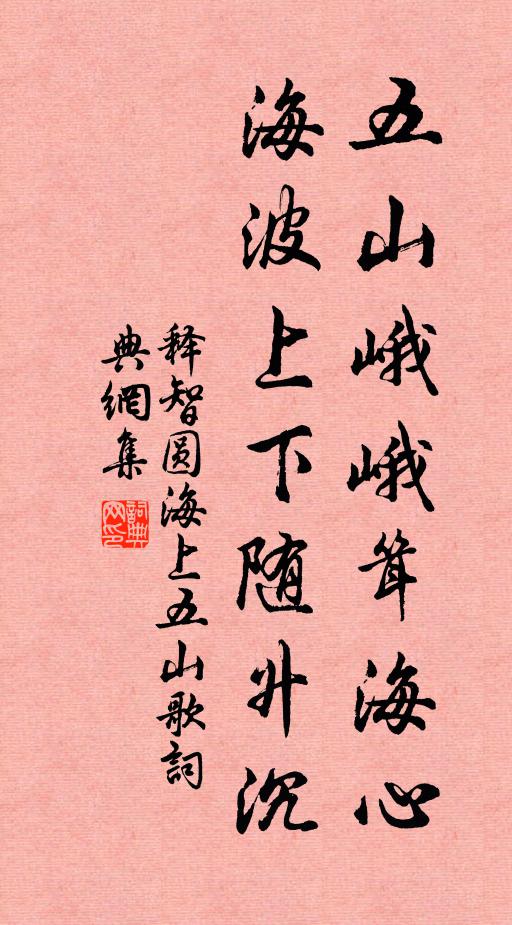 五山峨峨耸海心
海波上下随升沉
释智圆海上五山歌詞
典網集
詞典
网印